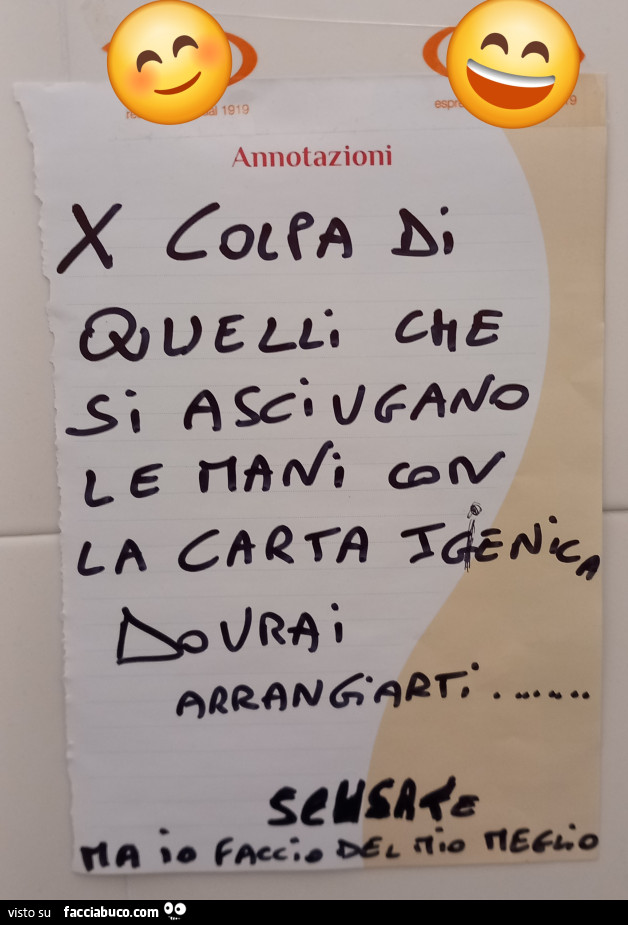 dal 1919
espre
19
Annotazioni
X COLPA Di
QUELLi CHE
Si ASCiUGANO
LE MANi CON
LA CARTA IGiENiCA
DOVRAi
ARRANGiARTi........
SCUSATE
MA io FACCio DEL Mio MEGLio
visto su facciabuco.com